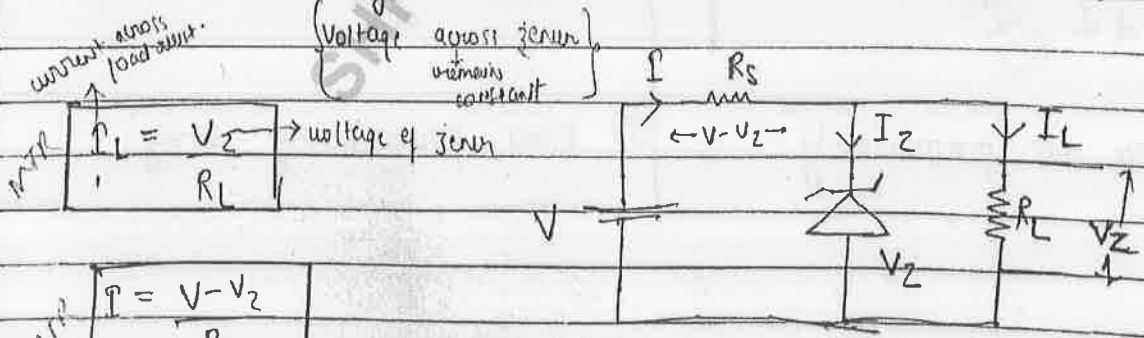 current across
load resist.
{Voltage across zener
remains
constant}
MTR
I_L = V_Z → voltage of zener
R_L
I = V - V_Z
I R_S
← V - V_Z →
I_Z
I_L
V
R_L
V_Z
V_Z